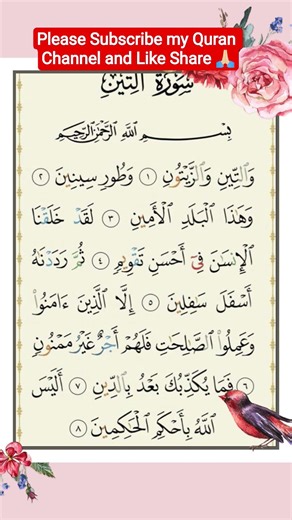 Please Subscribe my Quran
Channel and Like Share 🙏
سُورَةُ التِّينِ
بِسْمِ اللَّهِ الرَّحْمَٰنِ الرَّحِيمِ
وَالتِّينِ وَالزَّيْتُونِ ١ وَطُورِ سِينِينَ ٢
وَهَٰذَا الْبَلَدِ الْأَمِينِ ٣ لَقَدْ خَلَقْنَا
الْإِنسَٰنَ فِىٓ أَحْسَنِ تَقْوِيمٍ ٤ ثُمَّ رَدَدْنَٰهُ
أَسْفَلَ سَٰفِلِينَ ٥ إِلَّا الَّذِينَ ءَامَنُوا۟
وَعَمِلُوا۟ الصَّٰلِحَٰتِ فَلَهُمْ أَجْرٌ غَيْرُ مَمْنُونٍ
٦ فَمَا يُكَذِّبُكَ بَعْدُ بِالدِّينِ ٧ أَلَيْسَ
اللَّهُ بِأَحْكَمِ الْحَٰكِمِينَ ٨